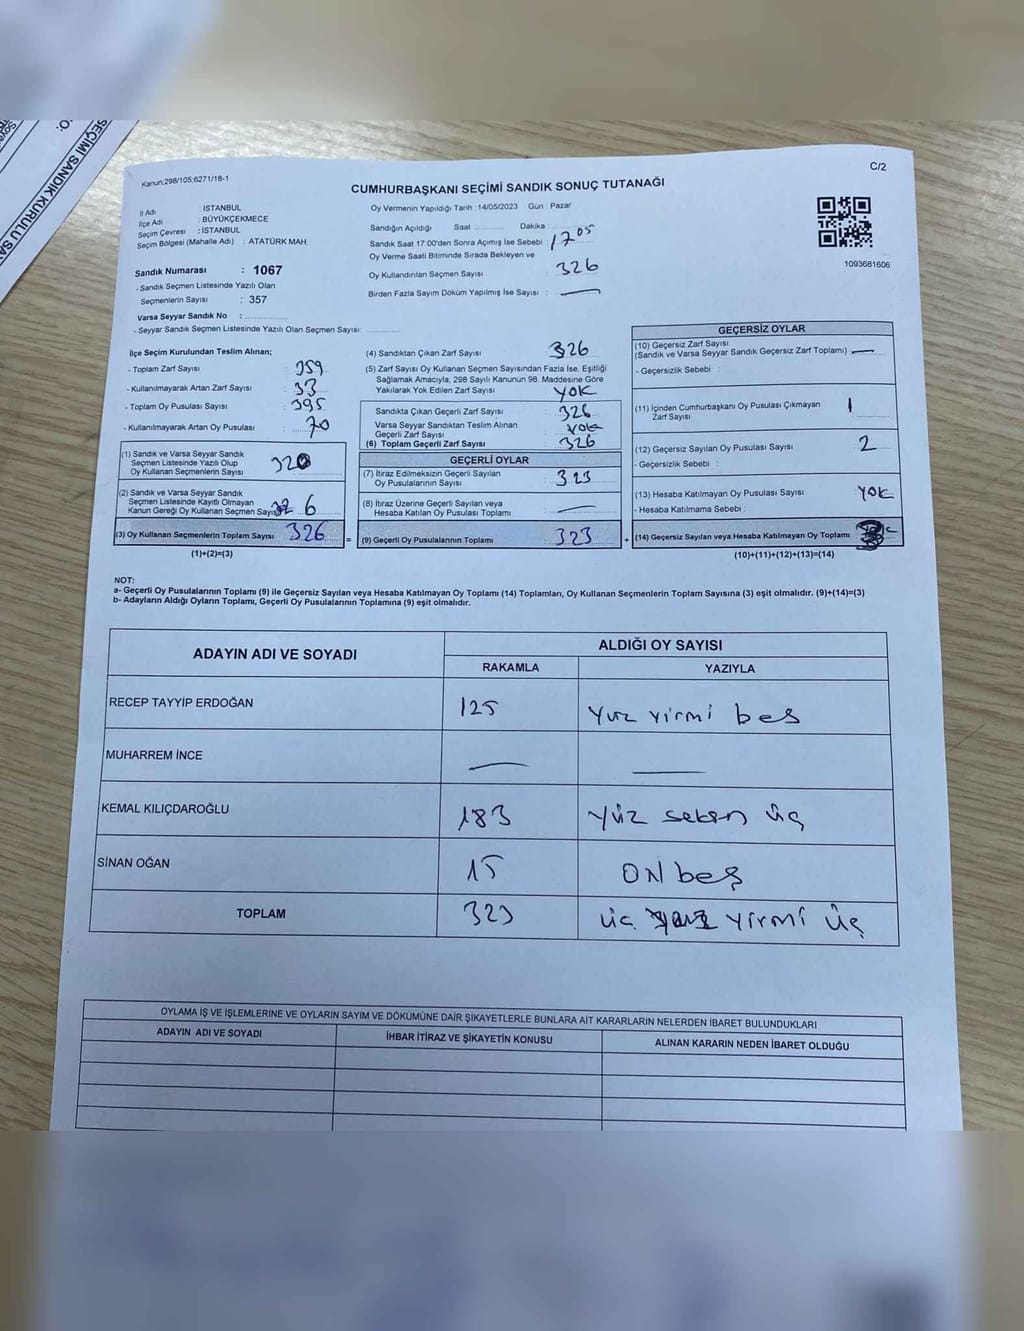 C/2
Kanun:298/105;6271/18-1
CUMHURBAŞKANI SEÇİMİ SANDIK SONUÇ TUTANAĞI
1093681606
İl Adı : İSTANBUL
İlçe Adı : BÜYÜKÇEKMECE
Seçim Çevresi : İSTANBUL
Seçim Bölgesi (Mahalle Adı) : ATATÜRK MAH.
Sandık Numarası : 1067
- Sandık Seçmen Listesinde Yazılı Olan
Seçmenlerin Sayısı : 357
Varsa Seyyar Sandık No :
- Seyyar Sandık Seçmen Listesinde Yazılı Olan Seçmen Sayısı:
Oy Vermenin Yapıldığı Tarih :14/05/2023 Gün : Pazar
Sandığın Açıldığı Saat Dakika :
Sandık Saat 17.00'den Sonra Açımış İse Sebebi : 17 05
Oy Verme Saati Bitiminde Sırada Bekleyen ve
Oy Kullandırılan Seçmen Sayısı : 326
Birden Fazla Sayım Döküm Yapılmış İse Sayısı :
İlçe Seçim Kurulundan Teslim Alınan;
- Toplam Zarf Sayısı : 359
- Kullanılmayarak Artan Zarf Sayısı : 33
- Toplam Oy Pusulası Sayısı : 395
- Kullanılmayarak Artan Oy Pusulası : 70
(1) Sandık ve Varsa Seyyar Sandık
Seçmen Listesinde Yazılı Olup
Oy Kullanan Seçmenlerin Sayısı 320
(2) Sandık ve Varsa Seyyar Sandık
Seçmen Listesinde Kayıtlı Olmayan
Kanun Gereği Oy Kullanan Seçmen Sayısı 6
(3) Oy Kullanan Seçmenlerin Toplam Sayısı 326
(1)+(2)=(3)
(4) Sandıktan Çıkan Zarf Sayısı : 326
(5) Zarf Sayısı Oy Kullanan Seçmen Sayısından Fazla İse, Eşitliği
Sağlamak Amacıyla; 298 Sayılı Kanunun 98. Maddesine Göre
Yakılarak Yok Edilen Zarf Sayısı : YOK
Sandıkta Çıkan Geçerli Zarf Sayısı : 326
Varsa Seyyar Sandıktan Teslim Alınan
Geçerli Zarf Sayısı : YOK
(6) Toplam Geçerli Zarf Sayısı : 326
GEÇERLİ OYLAR
(7) İtiraz Edilmeksizin Geçerli Sayılan
Oy Pusulalarının Sayısı : 323
(8) İtiraz Üzerine Geçerli Sayılan veya
Hesaba Katılan Oy Pusulası Toplamı :
= (9) Geçerli Oy Pusulalarının Toplamı : 323
GEÇERSİZ OYLAR
(10) Geçersiz Zarf Sayısı
(Sandık ve Varsa Seyyar Sandık Geçersiz Zarf Toplamı) :
- Geçersizlik Sebebi :
(11) İçinden Cumhurbaşkanı Oy Pusulası Çıkmayan
Zarf Sayısı : 1
(12) Geçersiz Sayılan Oy Pusulası Sayısı : 2
- Geçersizlik Sebebi :
(13) Hesaba Katılmayan Oy Pusulası Sayısı : YOK
- Hesaba Katılmama Sebebi :
+ (14) Geçersiz Sayılan veya Hesaba Katılmayan Oy Toplamı :
(10)+(11)+(12)+(13)=(14)
NOT:
a- Geçerli Oy Pusulalarının Toplamı (9) ile Geçersiz Sayılan veya Hesaba Katılmayan Oy Toplamı (14) Toplamları, Oy Kullanan Seçmenlerin Toplam Sayısına (3) eşit olmalıdır. (9)+(14)=(3)
b- Adayların Aldığı Oyların Toplamı, Geçerli Oy Pusulalarının Toplamına (9) eşit olmalıdır.
ADAYIN ADI VE SOYADI ALDIĞI OY SAYISI
RAKAMLA YAZIYLA
RECEP TAYYİP ERDOĞAN 125 Yüz yirmi beş
MUHARREM İNCE
KEMAL KILIÇDAROĞLU 183 Yüz seksen üç
SİNAN OĞAN 15 ON beş
TOPLAM 323 üç yüz yirmi üç
OYLAMA İŞ VE İŞLEMLERİNE VE OYLARIN SAYIM VE DÖKÜMÜNE DAİR ŞİKAYETLERLE BUNLARA AİT KARARLARIN NELERDEN İBARET BULUNDUKLARI
ADAYIN ADI VE SOYADI İHBAR İTİRAZ VE ŞİKAYETİN KONUSU ALINAN KARARIN NEDEN İBARET OLDUĞU
SEÇİMİ SANDIK KURULU